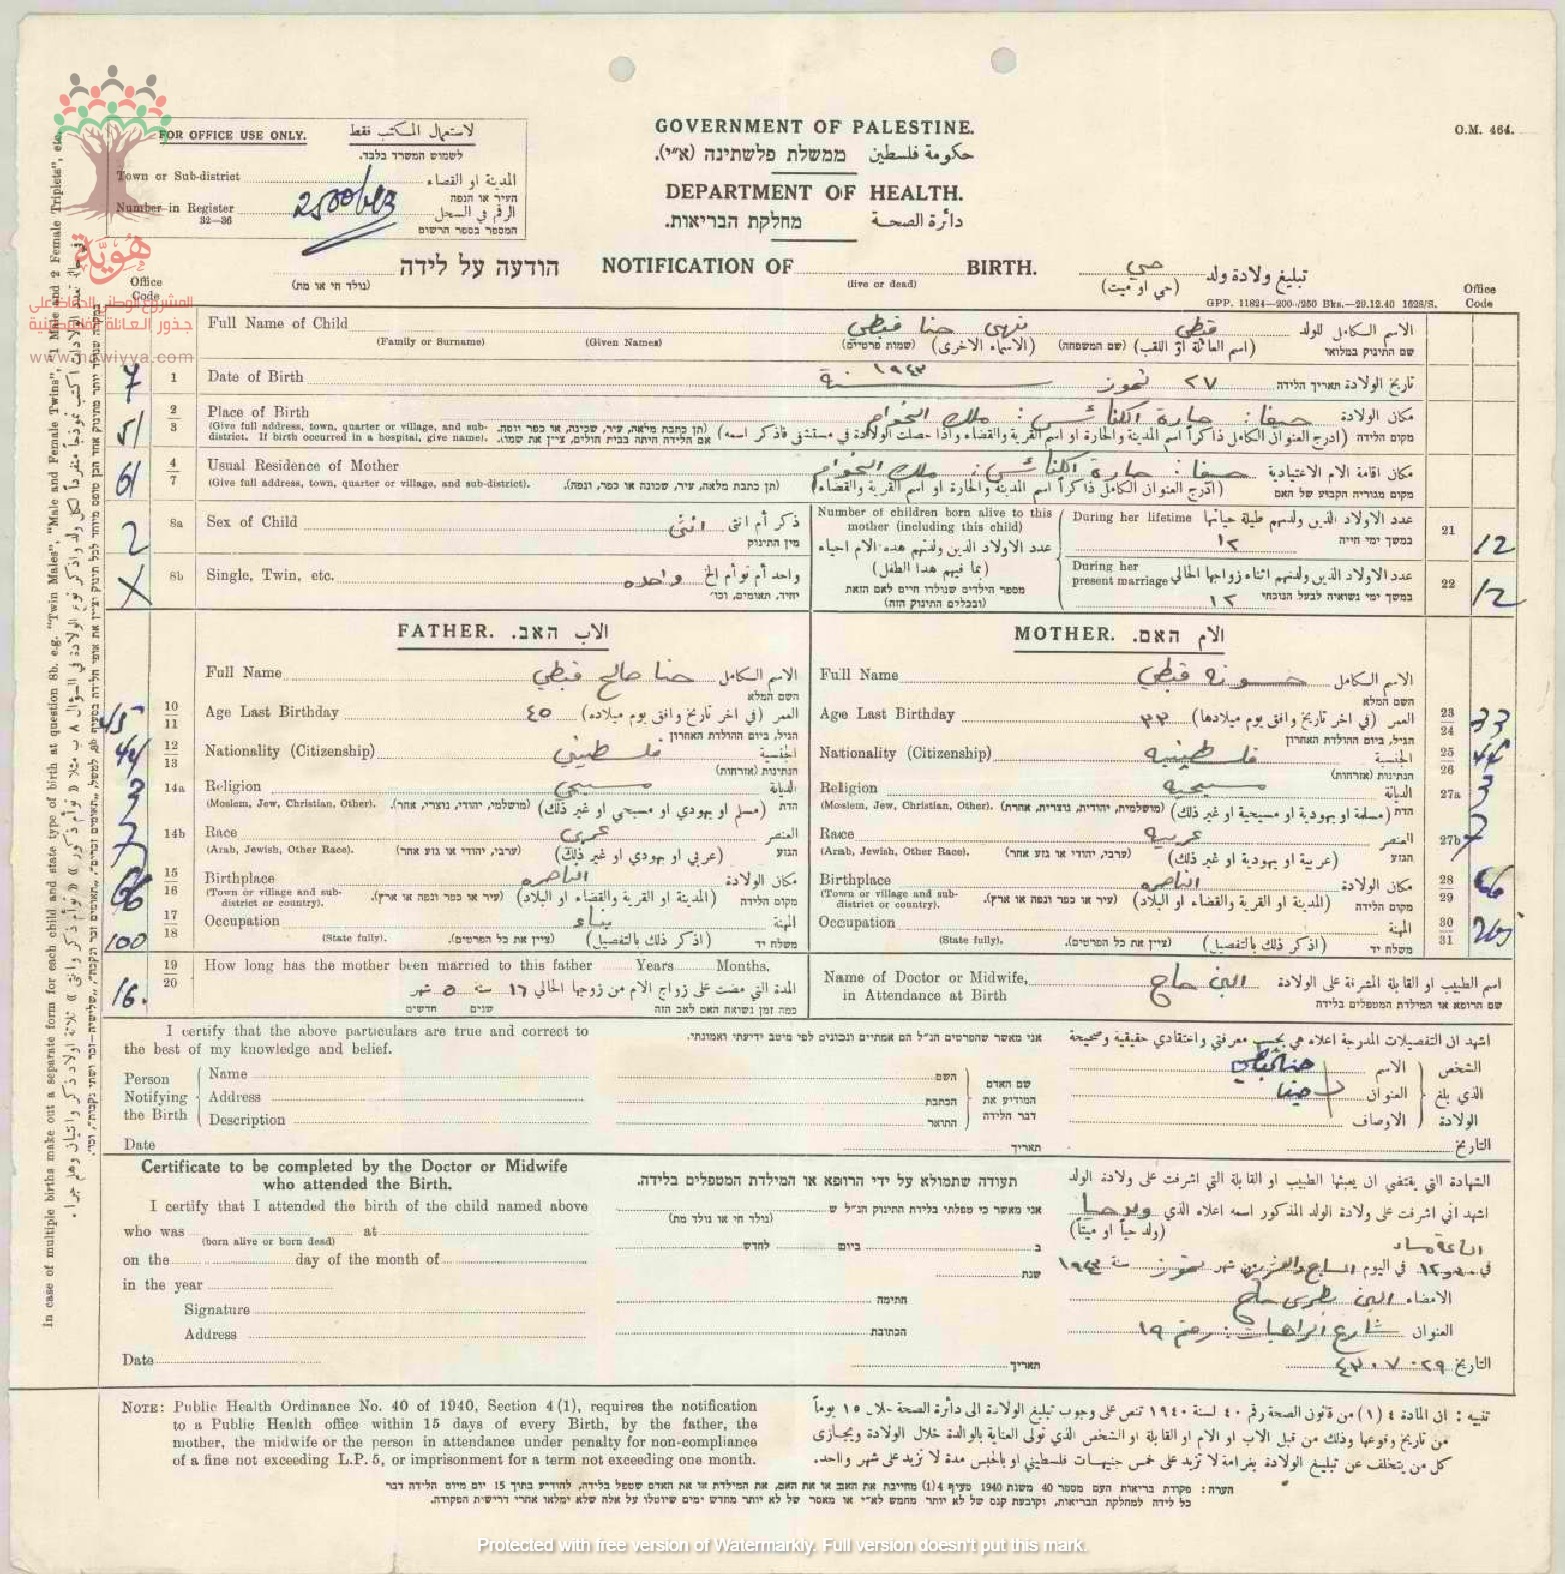 GOVERNMENT OF PALESTINE.
حكومة فلسطين ממשלת פלשתינה (א״י).
DEPARTMENT OF HEALTH.
دائرة الصحة מחלקת הבריאות.
O.M. 464.
FOR OFFICE USE ONLY. لاستعمال المكتب فقط
לשמוש המשרד בלבד.
Town or Sub-district المدينة او القضاء
העיר או הנפה
Number in Register الرقم في السجل
32—36
המספר בספר הרשום
هوية
المشروع الوطني للحفاظ على
جذور العائلة الفلسطينية
www.howiyya.com
הודעה על לידה NOTIFICATION OF BIRTH. تبليغ ولادة ولد حي
(נולד חי או מת) (live or dead) (حي او ميت)
GPP. 11824—200/250 Bks.—29.12.40 1628/S.
Office Code
Office Code
Full Name of Child قبطي حنا قبطي الاسم الكامل للولد
(Family or Surname) (Given Names) (שמות פרטיים) (الاسماء الاخرى) (שם המשפחה) (اسم العائلة او اللقب) שם התינוק במלואו
7 1 Date of Birth ٢٧ تموز سنة ١٩٤٣ تاريخ الولادة תאריך הלידה
51 2 3 Place of Birth حيفا: حارة الكنائس: ملك الخوام مكان الولادة
(Give full address, town, quarter or village, and sub-district. If birth occurred in a hospital, give name). (תן כתבת מלאה, עיר, שכונה, או כפר ונפה. אם הלידה היתה בבית חולים, ציין את שמו). (ادرج العنوان الكامل ذاكراً اسم المدينة والحارة او اسم القرية والقضاء واذا حصلت الولادة في مستشفى فاذكر اسمه) מקום הלידה
61 4 7 Usual Residence of Mother حيفا: حارة الكنائس: ملك الخوام مكان اقامة الام الاعتيادية
(Give full address, town, quarter or village, and sub-district). (תן כתבת מלאה, עיר, שכונה או כפר, ונפה). (ادرج العنوان الكامل ذاكراً اسم المدينة والحارة او اسم القرية والقضاء) מקום מגוריה הקבוע של האם
2 8a Sex of Child انثى ذكر أم انثى
מין התינוק
X 8b Single, Twin, etc. واحده واحد أم توأم الخ
יחיד, תאומים, וכו׳
Number of children born alive to this mother (including this child)
عدد الاولاد الذين ولدتهم هذه الام احياء (بما فيهم هذا الطفل)
מספר הילדים שנולדו חיים לאם הזאת (ובכללם התינוק הזה)
During her lifetime عدد الاولاد الذين ولدتهم طيلة حياتها 21 12
١٢ במשך ימי חייה
During her present marriage عدد الاولاد الذين ولدتهم اثناء زواجها الحالي 22 12
١٢ במשך ימי נשואיה לבעל הנוכחי
FATHER. الاب האב.
Full Name حنا صالح قبطي الاسم الكامل
השם המלא
45 10 11 Age Last Birthday ٤٥ العمر (في اخر تاريخ وافق يوم ميلاده)
הגיל, ביום ההולדת האחרון
44 12 13 Nationality (Citizenship) فلسطيني الجنسية
הנתינות (אזרחות)
3 14a Religion مسيحي الديانة
(Moslem, Jew, Christian, Other). (מושלמי, יהודי, נוצרי, אחר). (مسلم او يهودي او مسيحي او غير ذلك) הדת
7 14b Race عربي العنصر
(Arab, Jewish, Other Race). (ערבי, יהודי או גזע אחר) (عربي او يهودي او غير ذلك) הגזע
66 15 16 Birthplace الناصره مكان الولادة
(Town or village and sub-district or country). (עיר או כפר ונפה או ארץ). (المدينة او القرية والقضاء او البلاد) מקום הלידה
100 17 18 Occupation بناء المهنة
(State fully). (ציין את כל הפרטים). (اذكر ذلك بالتفصيل) משלח יד
16. 19 20 How long has the mother been married to this father Years Months.
المدة التي مضت على زواج الام من زوجها الحالي ١٦ سنة ٥ شهر
כמה זמן נשואה האם לאב הזה שנים חדשים
MOTHER. الام האם.
Full Name حسونه قبطي الاسم الكامل
השם המלא
Age Last Birthday ٣٣ العمر (في اخر تاريخ وافق يوم ميلادها) 23 24 33
הגיל, ביום ההולדת האחרון
Nationality (Citizenship) فلسطينيه الجنسية 25 26 44
הנתינות (אזרחות)
Religion مسيحيه الديانة 27a 3
(Moslem, Jew, Christian, Other). (מושלמית, יהודית, נוצרית, אחרת). (مسلمة او يهودية او مسيحية او غير ذلك) הדת
Race عربيه العنصر 27b 7
(Arab, Jewish, Other Race). (ערבי, יהודי או גזע אחר) (عربية او يهودية او غير ذلك) הגזע
Birthplace الناصره مكان الولادة 28 29 66
(Town or village and sub-district or country). (עיר או כפר ונפה או ארץ). (المدينة او القرية والقضاء او البلاد) מקום הלידה
Occupation المهنة 30 31
(State fully). (ציין את כל הפרטים). (اذكر ذلك بالتفصيل) משלח יד
Name of Doctor or Midwife, in Attendance at Birth الين حاج اسم الطبيب او القابلة المشرفة على الولادة
שם הרופא או המילדת המטפלים בלידה
I certify that the above particulars are true and correct to the best of my knowledge and belief.
אני מאשר שהפרטים הנ״ל הם אמתיים ונכונים לפי מיטב ידיעתי ואמונתי.
اشهد ان التفصيلات المدرجة اعلاه هي بحسب معرفتي واعتقادي حقيقية وصحيحة
Person Notifying the Birth
Name השם الاسم حنا قبطي
Address הכתבת العنوان حيفا
Description התואר الاوصاف
שם האדם המודיע את דבר הלידה
الشخص الذي بلغ الولادة
Date תאריך التاريخ
Certificate to be completed by the Doctor or Midwife who attended the Birth.
תעודה שתמולא על ידי הרופא או המילדת המטפלים בלידה.
الشهادة التي يقتضي ان يعبئها الطبيب او القابلة التي اشرفت على ولادة الولد
I certify that I attended the birth of the child named above
who was at
(born alive or born dead)
on the day of the month of
in the year
Signature
Address
Date
אני מאשר כי טפלתי בלידת התינוק הנ״ל ש
(נולד חי או נולד מת)
ב ביום לחדש
שנת
חתימה
הכתובת
תאריך
اشهد اني اشرفت على ولادة الولد المذكور اسمه اعلاه الذي ولد حيا
(ولد حياً او ميتاً)
الساعة مساء
في في اليوم السابع والعشرين شهر تموز سنة ١٩٤٣
الامضاء الين بطرس حاج
العنوان شارع الراهبات: رقم ١٩
التاريخ ٢٩.٧.٤٣
NOTE: Public Health Ordinance No. 40 of 1940, Section 4(1), requires the notification to a Public Health office within 15 days of every Birth, by the father, the mother, the midwife or the person in attendance under penalty for non-compliance of a fine not exceeding L.P. 5, or imprisonment for a term not exceeding one month.
تنبيه: ان المادة ٤ (١) من قانون الصحة رقم ٤٠ لسنة ١٩٤٠ تنص على وجوب تبليغ الولادة الى دائرة الصحة خلال ١٥ يوماً
من تاريخ وقوعها وذلك من قبل الاب او الام او القابلة او الشخص الذي تولى العناية بالوالدة خلال الولادة ويجازى
كل من يتخلف عن تبليغ الولادة بغرامة لا تزيد على خمس جنيهات فلسطيني او بالحبس مدة لا تزيد على شهر واحد.
הערה: פקודת בריאות העם מספר 40 משנת 1940 סעיף 4(1) מחייבת את האב או את האם, את המילדת או את האדם שטפל בלידה, להודיע בתוך 15 יום מיום הלידה דבר
כל לידה למחלקת הבריאות, וקובעת קנס של לא יותר מחמש לא״י או מאסר של לא יותר מחדש ימים שיוטלו על אלה שלא ימלאו אחרי דרישות הפקודה.
In case of multiple births make out a separate form for each child and state type of birth at question 8b. e.g. "Twin Males", "Male and Female Twins", "1 Male and 2 Female Triplets", etc.
Protected with free version of Watermarkly. Full version doesn't put this mark.